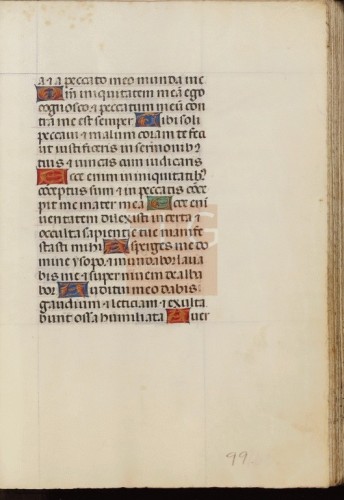 a & a peccato meo munda me
Qm̄ iniquitatem meā ego
cognosco & peccatum meū con
tra me est semper Tibi soli
peccaui & malum coram te feci
ut iustificeris in sermonibꝰ
tuis & uincas cum iudicaris
Ecce enim in iniquitatibꝰ
cōceptus sum & in peccatis cōce
pit me mater mea Ecce eni
ueritatem dilexisti incerta &
occulta sapientie tue manife
stasti mihi Asperges me do
mine ysopo & mundabor laua
bis me & super niuem dealba
bor Auditui meo dabis
gaudium & leticiam & exulta
bunt ossa humiliata Auer
99